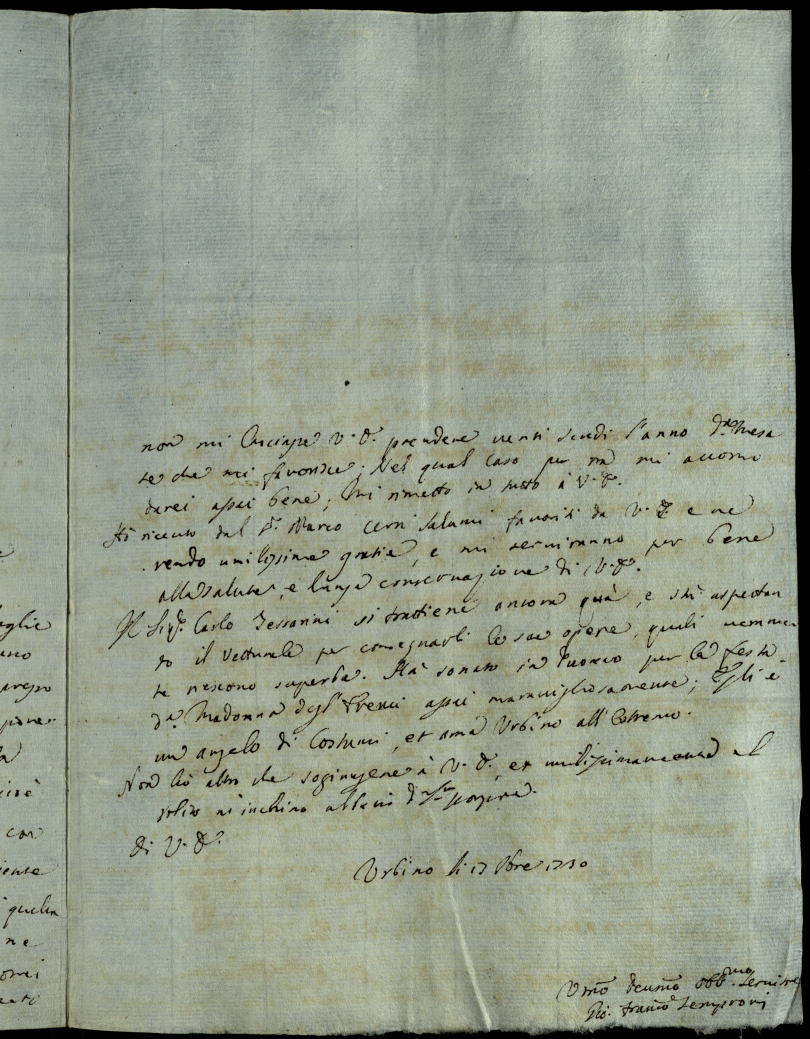 non mi lasciasse V. E. prendere venti scudi l'anno
te che mi favorisce; Nel qual caso per mà mi accomo
darei assai bene; mi rimetto in tutto à V. E.
Hò ricevuto dal Sr. Marco cerri salumi favoriti da V. E. e ne
rendo umilissime gratie, e mi serviranno per bere
alla salute, e lunga conservazione di V. E.
Il Sigr. Carlo Tessarini si trattiene ancora quà, e stà aspettan
do il vetturale per consegnarli le sue opere, quali
te riescono superbe. Hà sonato in Duomo per la festa
da. Madonna degl' assai maravigliosamente; Egli è
un angelo di Costumi, et ama Urbino all' estremo.
Non hò altro che sogiungere à V. E., et umilissimamente al
solito m'inchino alla sua
di V. E.
Urbino li 17 8bre 1730
Umo Devmo obbmo Servitre
Gio. Franco Semproni
uglie
ano
presso
con
iente
quella
ne